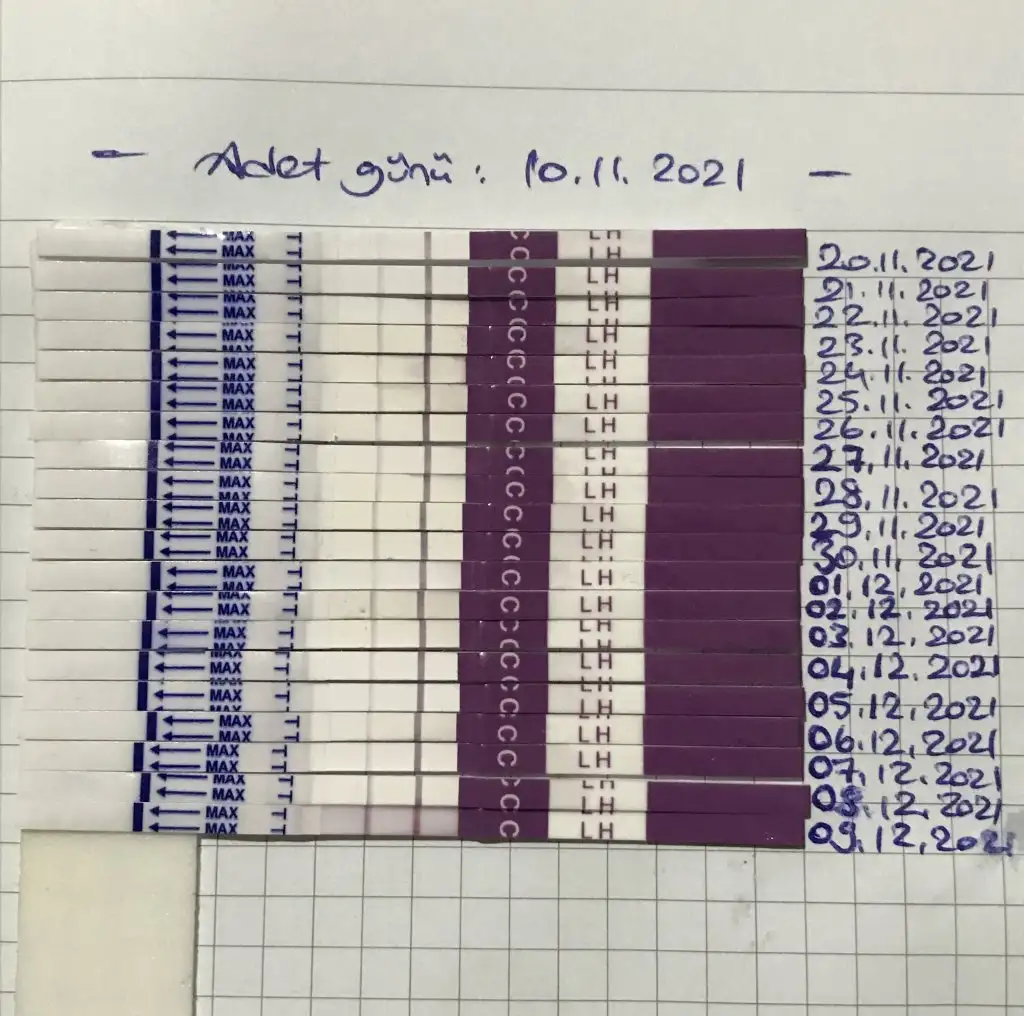 - Adet günü : 10.11.2021 -
MAX C LH
MAX C LH 20.11.2021
MAX C LH 21.11.2021
MAX C LH 22.11.2021
MAX C LH 23.11.2021
MAX C LH 24.11.2021
MAX C LH 25.11.2021
MAX C LH 26.11.2021
MAX C LH 27.11.2021
MAX C LH 28.11.2021
MAX C LH 29.11.2021
MAX C LH 30.11.2021
MAX C LH 01.12.2021
MAX C LH 02.12.2021
MAX C LH 03.12.2021
MAX C LH 04.12.2021
MAX C LH 05.12.2021
MAX C LH 06.12.2021
MAX C LH 07.12.2021
MAX C LH 08.12.2021
MAX C LH 09.12.2021